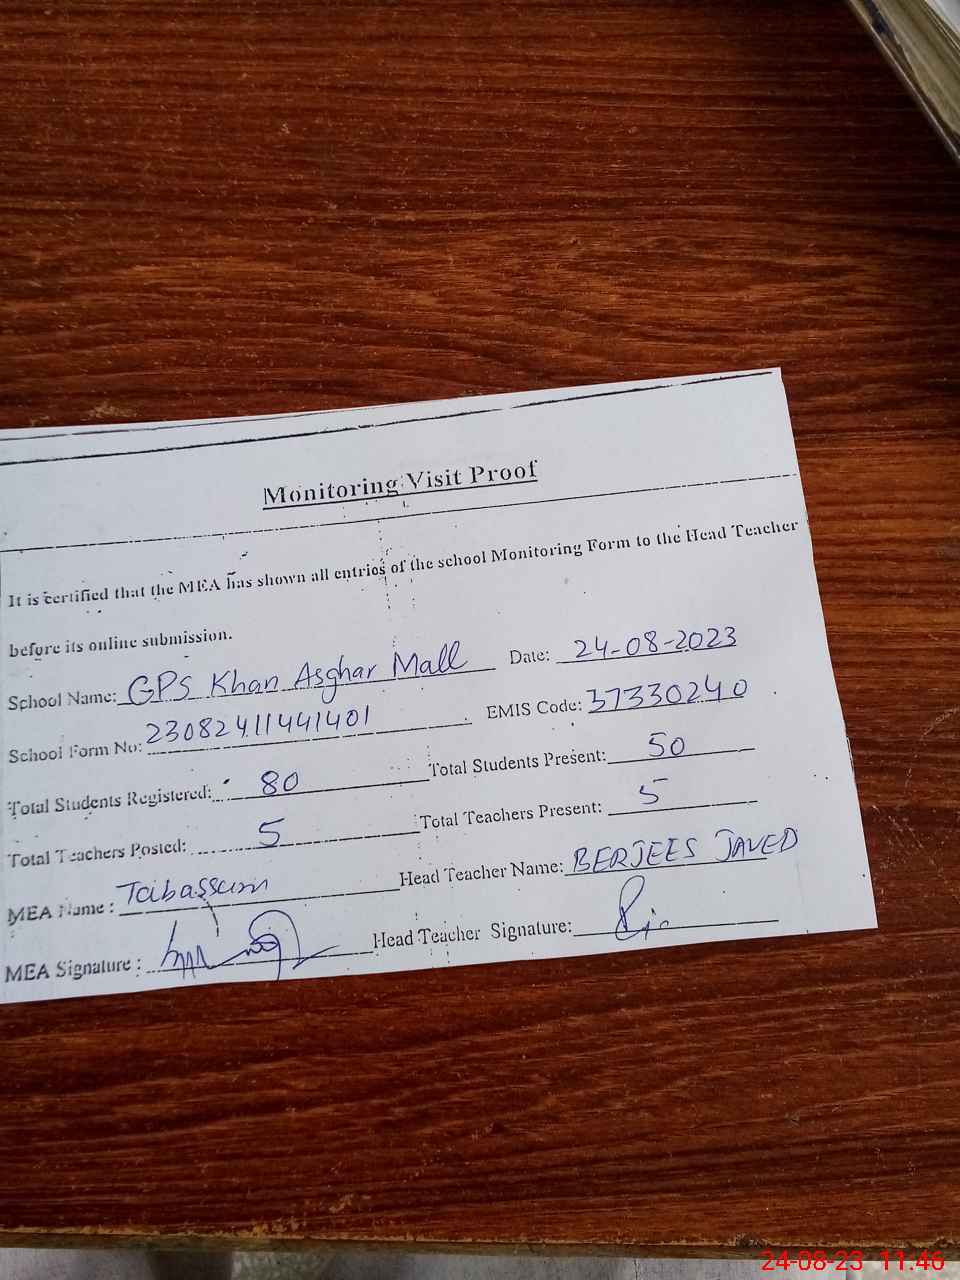 Monitoring Visit Proof
It is certified that the MEA has shown all entries of the school Monitoring Form to the Head Teacher
before its online submission.
School Name: GPS Khan Asghar Mall Date: 24-08-2023
School Form No: 23082411441401 EMIS Code: 37330240
Total Students Registered: 80 Total Students Present: 50
Total Teachers Posted: 5 Total Teachers Present: 5
MEA Name : Tabassum Head Teacher Name: BERJEES JAVED
MEA Signature : Head Teacher Signature:
24-08-23 11:46